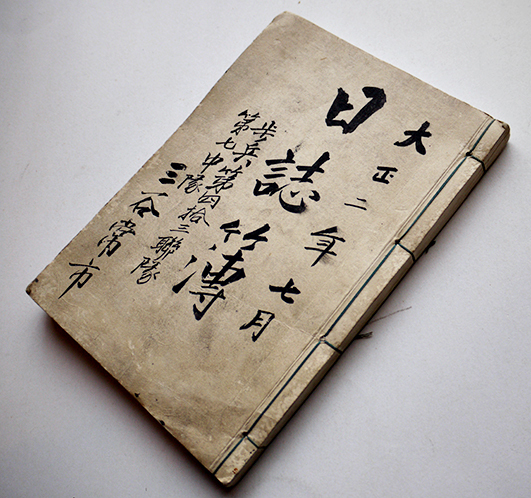 大正二年七月
日誌簿
歩兵第四拾三聯隊
第七中隊
三谷常市